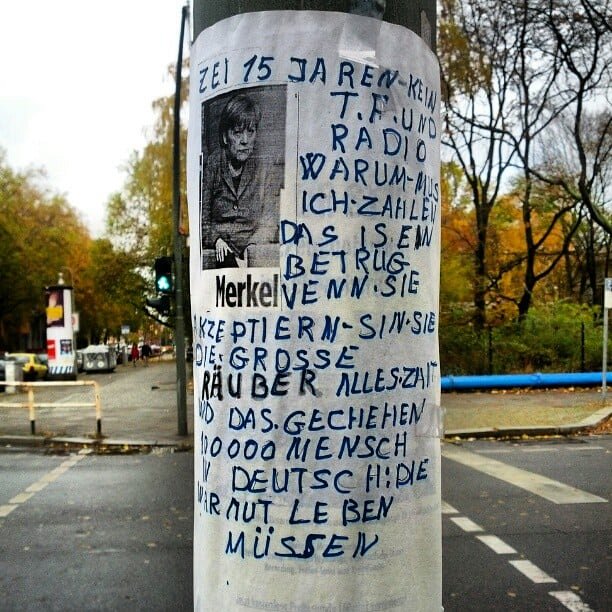 ZEI 15 JAREN-KEIN
T.F.UND
RADIO
WARUM-MUS
ICH-ZAHLEN
DAS IS EIN
BETRUG
Merkel VENN.SIE
AKZEPTIERN-SIN-SIE
DIE.GROSSE
RÄUBER ALLES.ZAIT
UND DAS.GECHEHEN
100000 MENSCH
IN DEUTSCH:DIE
ARMUT LEBEN
MÜSSEN